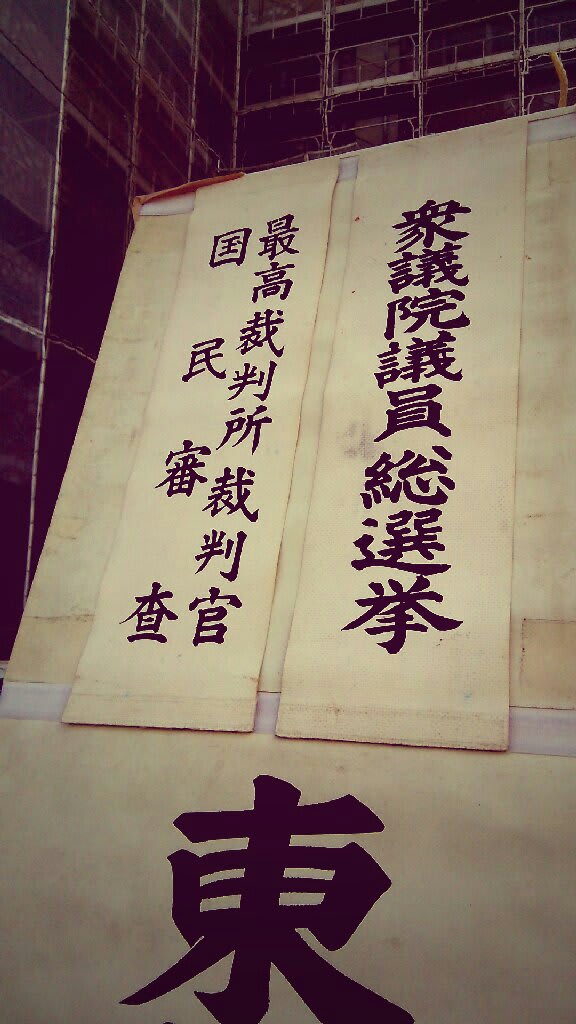 衆議院議員総選挙
最高裁判所裁判官
国民審査
東